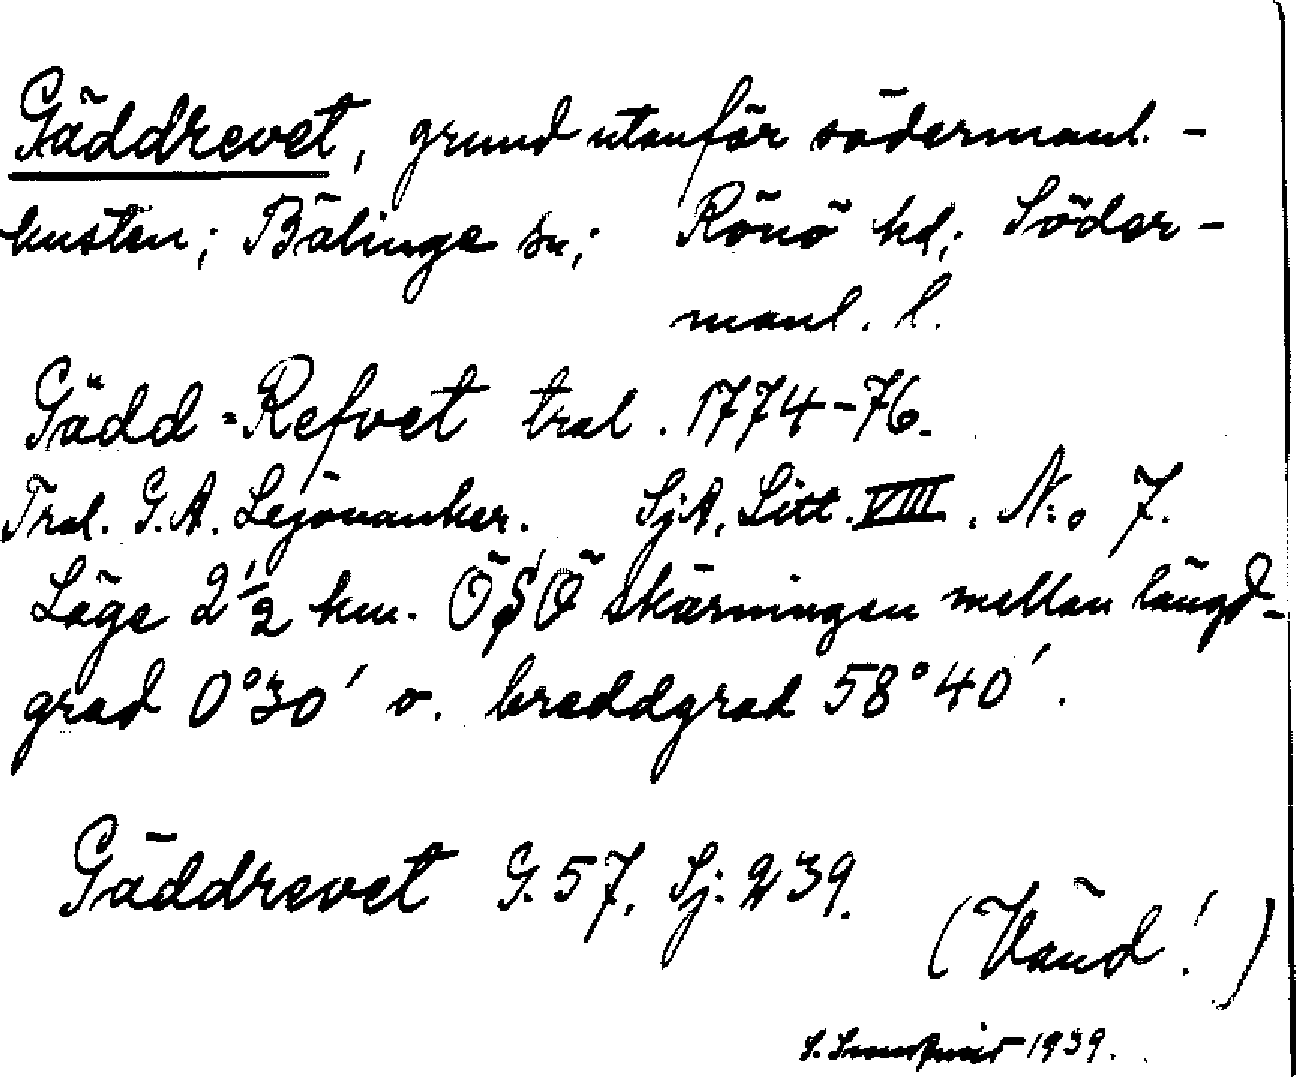 Gäddrevet, grund utanför södermanl.-
kusten; Bälinge sn; Rönö hd; Söder-
manl. l.
Gädd-Refvet tral. 1774-76.
Tral. G.A. Lejonanker. SjA. Litt. VIII. N:o 7.
Läge 2 1/2 km. ÖSÖ skärningen mellan längd-
grad 0°30′ o. breddgrad 58°40′.
Gäddrevet G. 57. Sj: 239.
(Vänd!)
1939.